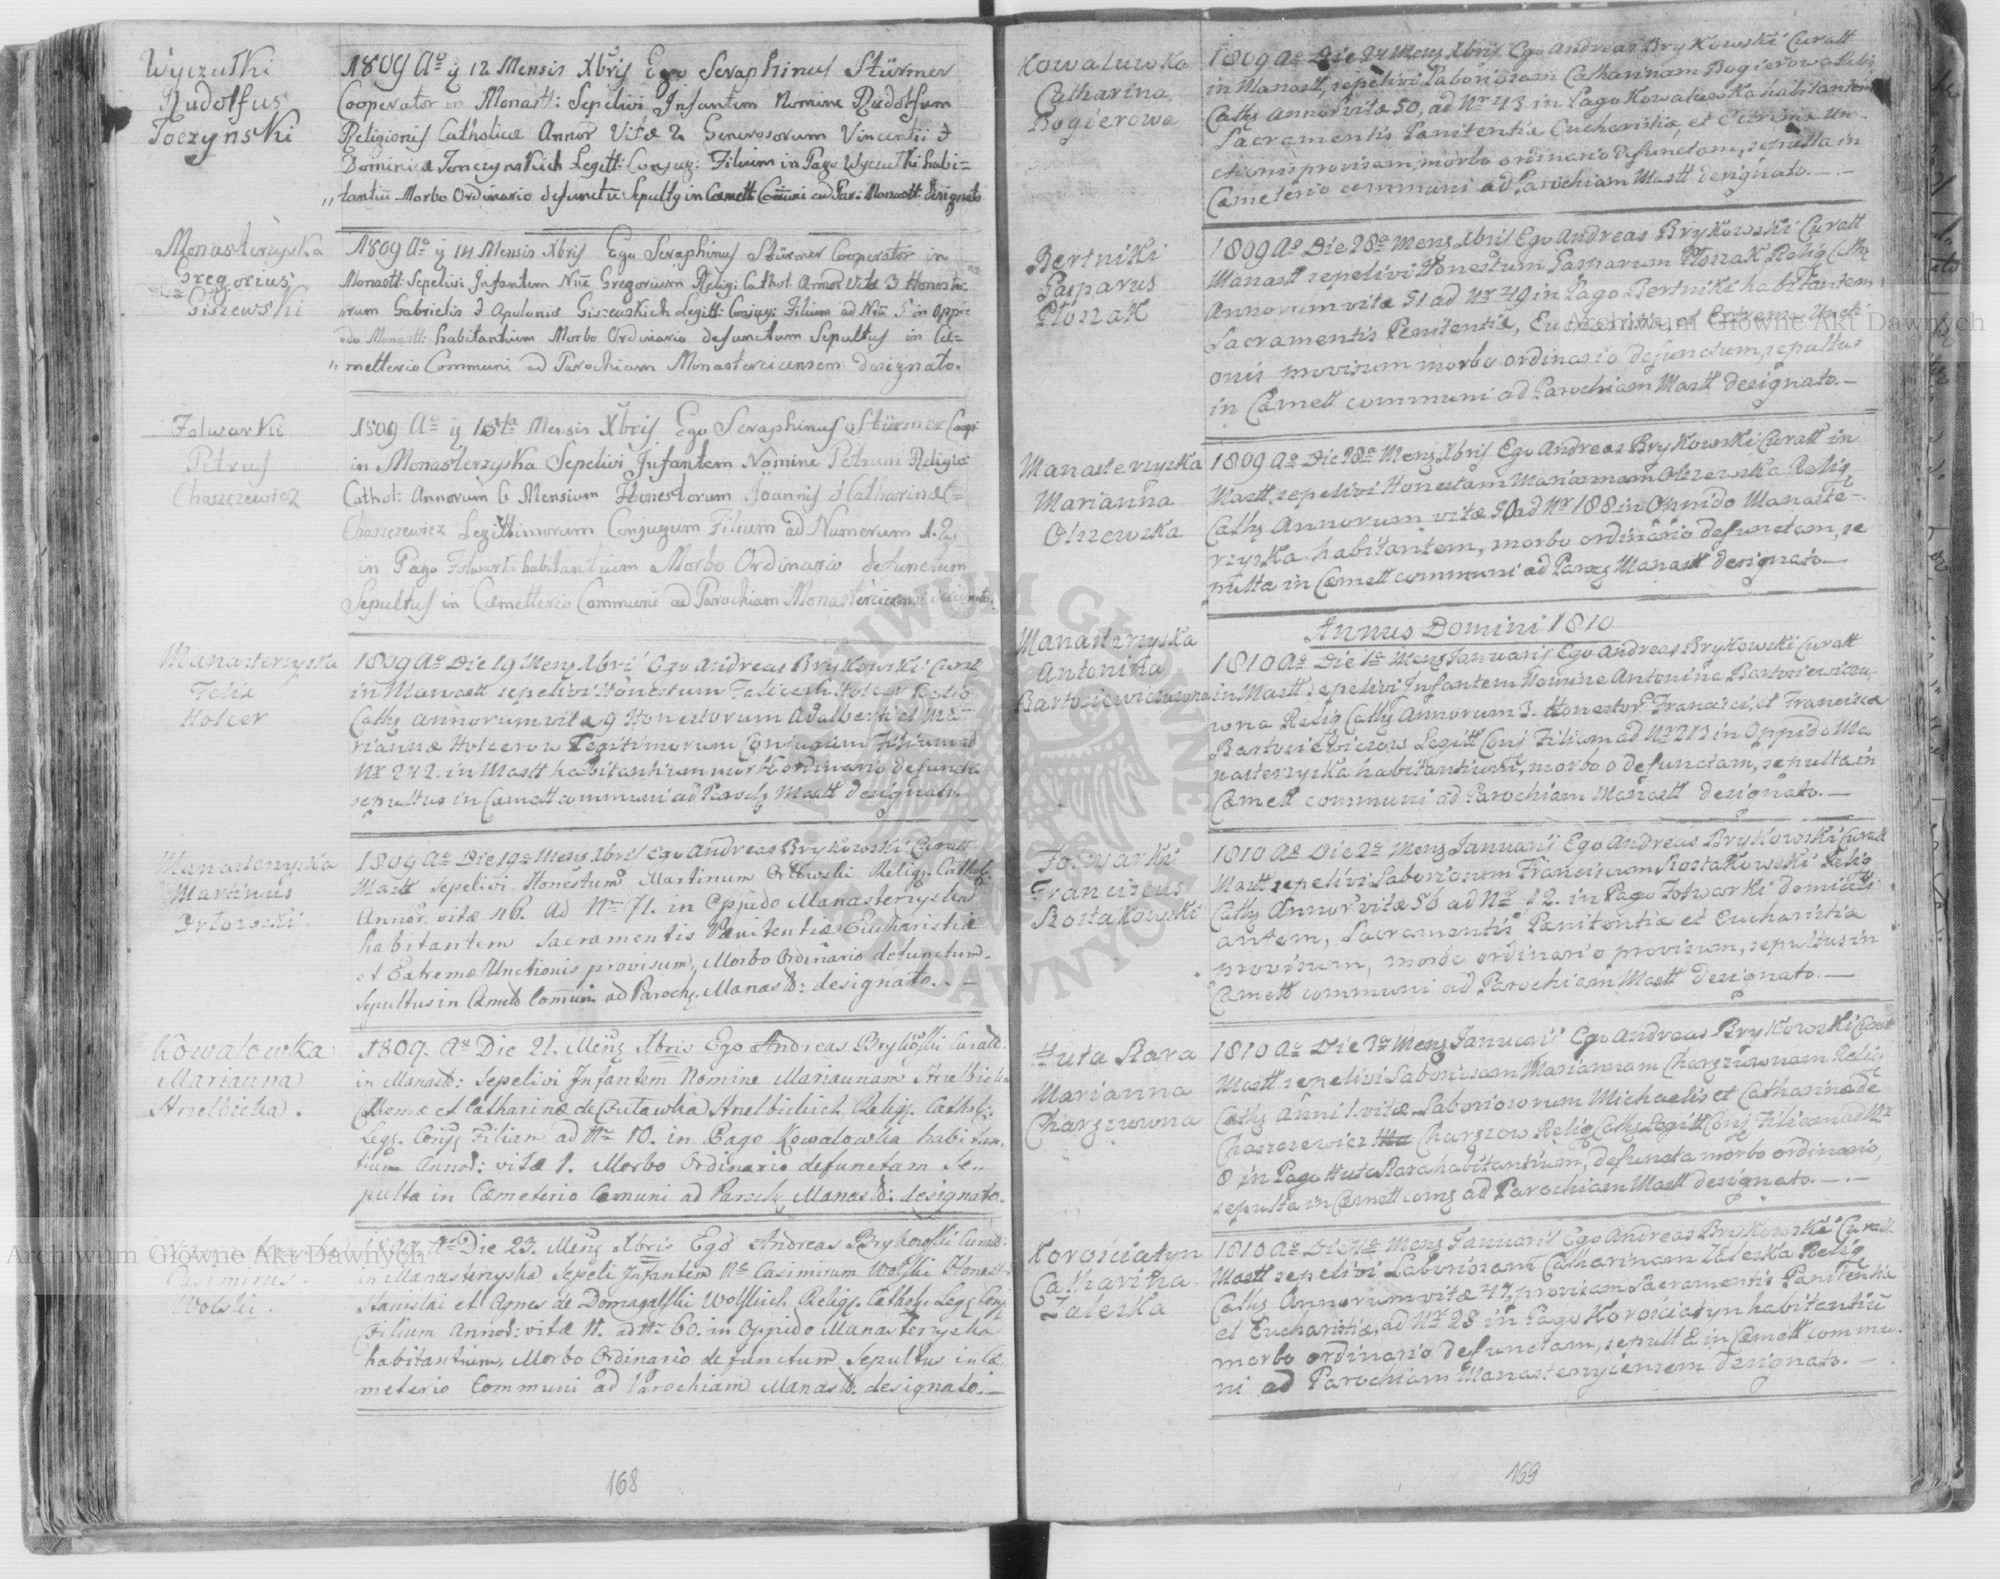 Wyczułki
Rudolfus
Toczynski
1809 Aō ÿ 12 Mensis Xbris Ego Seraphinus Stürmer
Cooperator in Monast: Sepelivi Infantem Nomine Rudolfum
Religionis Catholicæ Annor Vitæ 2 Generosorum Vincentii &
Dominicæ Tonczynskich Legitt: Conjug: Filium in Pago Wyczułki habi=
tantiū Morbo Ordinario defunctū Sepultq in Cæmett: Com̄uni ad Par: Monast: designato
Monasterzyska
Gregorius
Giszewski
1809 Aō ÿ 14 Mensis Xbris Ego Seraphinus Stürmer Cooperator in
Monast: Sepelivi Infantem Nne Gregorium Religi: Cathol: Annor Vitæ 3 Honesto
rum Gabrielis & Apoloniæ Giszewskich Legitt: Conjug: Filium ad Nrū 5 in Oppi=
do Monast: habitantium Morbo Ordinario defunctum Sepultus in Cæ=
metterio Communi ad Parochiam Monasterciensem designato.
Folwarki
Petrus
Chaszczewicz
1809 Aō ÿ Mensis Xbris Ego Seraphinus Stürmer Coop:
in Monasterzyska Sepelivi Infantem Nomine Petrum Religio:
Cathol: Annorum 6 Mensium Honestorum Joannis & Catharinæ
Chaszczewicz Legittimorum Conjugum Filium ad Numerum 12
in Pago Folwarki habitantium Morbo Ordinario defunctum
Sepultus in Cæmetterio Communi ad Parochiam Monasterciensem designato.
Manasterzyska
Felix
Holcer
1809 Ao Die 19 Mens Xbris Ego Andreas Brykowski Curatt
in Manastt sepelivi Honestum Felicem Holcer Relig
Cathq annorum vitæ 9 Honestorum Adalberti et Ma=
riannæ Holcerow Legitimorum Conjugum Filium ad
Nr 242. in Mastt habitantium morbo ordinario defunctu
sepultus in Cæmett communi ad Parochq Mastt designato.
Manasterzyska
Martinus
Orłowski
1809 Ao Die 19a Mens Xbris Ego Andreas Brykowski Curatt
Mastt sepelivi Honestum Martinum Orłowski Relig. Cathol:
Annor. vitæ 46. Ad Nrm 71. in Oppido Manasterzyska
habitantem sacramentis Pænitentiæ Eucharistiæ
et Extremæ Unctionis provisum, Morbo Ordinario defunctum
sepultus in Cæmeto Com̄uni ad Paroch. Manast: designato. –
Kowalowka
Marianna
Anelbicka.
1809. Ao Die 21. Mens Xbris Ego Andreas Brykowski Curatt:
in Manast: Sepelivi Infantem Nomine Mariannam Anelbicka
et Catharinæ de Anelbickich Relig. Cathol:
Leg. Conjg Filiam ad Nrm 10. in Pago Kowalowka habitan,
tium Annor: vitæ 1. Morbo Ordinario defunctam Se,,
pulta in Cæmeterio Comuni ad Paroch Manast: designato.
Casimirus.
Wolski.
1809 Ao Die 23. Mens Xbris Ego Andreas Brykowski Curatt:
in Manasterzyska Sepeli Infantem Nne Casimirum Wolski Honest:
Stanislai et Agnes de Domagalskie Wolskich Relig. Cathol: Leg. Conj
Filium Annor: vitæ 11. ad Nrm 60. in Oppido Manasterzyska
habitantium, Morbo Ordinario defunctum Sepultus in Cæ,
meterio Communi ad Parochiam Manast: designato. –
168
Kowaluwka
Catharina
Bogierowa
1809 Ao Die 24 Mens Xbris Ego Andreas Brykowski Curatt
in Manastt, sepelivi Laboriosam Catharinam Bogierowa Relig
Cathq annor vitæ 50, ad Nr 43 in Pago Kowaluwka habitantem
Sacramentis Pænitentiæ Eucharistiæ, et Extremæ Un=
ctionis provisam, morbo ordinario defunctam, sepulta in
Cæmeterio communi ad Parochiam Mastt designato. –
Bertniki
Gasparus
Płoszak
1809 Ao Die 28a Mens Xbris Ego Andreas Brykowski Curatt
Manastt sepelivi Honestum Gasparum Płoszak Relig Cathq
Annorum vitæ 51 ad Nr 49 in Pago Bertniki habitantem
Sacramentis Penitentiæ, Eucharistiæ, et Extremæ Uncti
onis provisum morbo ordinario defunctum, sepultus
in Cæmett communi ad Parochiam Mastt designato. –
Manasterzyska
Marianna
Olszewska
1809 Ao Die 28a Mens Xbris Ego Andreas Brykowski Curatt in
Mastt. sepelivi Honestam Mariannam Olszewska Relig
Cathq Annorum vitæ 50 ad Nr 188 in Oppido Manaste-
rzyska habitantem, morbo ordinario defunctam, se
pulta in Cæmett communi ad Parog Manastt designato. –
Annus Domini 1810
Manasterzyska
Antonina
Bartosiewiczowna
1810 Ao Die 1a Mens Januarij Ego Andreas Brykowski Curatt
in Mastt sepelivi Infantem Nomine Antonina Bartosiewiczo,
wna Relig Cathq Annorum 3. Honestor Francisci, et Francisca
Bartosiewiczow Legitt Conj Filiam ad Nr 213 in Oppido Ma
nasterzyska habitantium, morbo o defunctam, sepulta in
Cæmett communi ad Parochiam Manastt designato. –
Folwarki
Franciscus
Rostakowski
1810 Ao Die 2a Mens Januarii Ego Andreas Brykowski Curatt
Mastt sepelivi Laboriosum Franciscum Rostakowski Relig
Cathq Annor vitæ 56 ad Nr 12. in Pago Folwarki domicili
antem, Sacramentis Pænitentiæ et Eucharistiæ
provisum, morbo ordinario provisum, sepultus in
Cæmett communi ad Parochiam Mastt designato. –
Huta Stara
Marianna
Charzzowna
1810 Ao Die 3a Mens Januarii Ego Andreas Brykowski Curatt
Mastt sepelivi Laboriosam Mariannam Charzzownam Relig
Cathq anni 1. vitæ Laboriosorum Michaelis et Catharinæ de
Chaszczewicz Charzzow Relig Cathq Legitt Conj Filiam ad Nr
8 in Pago Huta Stara habitantium, defuncta morbo ordinario,
sepulta in Cæmett comg ad Parochiam Mastt designato. –
Korosciatyn
Catharina
Zaleska
1810 Ao Die 4a Mens Januarii Ego Andreas Brykowski Curatt
Mastt sepelivi Laboriosam Catharinam Zaleska Relig
Cathq Annorum vitæ 47, provisam Sacramentis Pænitentiæ
et Eucharistiæ, ad Nr 28 in Pago Korosciatyn habitantiū
morbo ordinario defunctam, sepulta in Cæmett commu
ni ad Parochiam Manasterzyciensem designato. –
169
Archiwum Główne Akt Dawnych
Archiwum Główne Akt Dawnych
ARCHIWUM GŁÓWNE AKT DAWNYCH